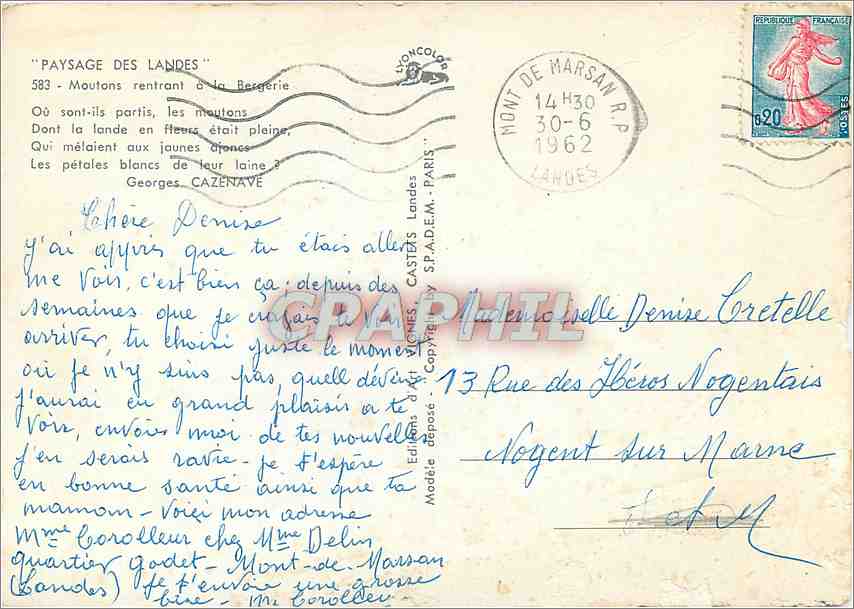 "PAYSAGE DES LANDES"
583 - Moutons rentrant à la Bergerie
Où sont-ils partis, les moutons
Dont la lande en fleurs était pleine,
Qui mêlaient aux jaunes ajoncs
Les pétales blancs de leur laine ?
Georges CAZENAVE
LYONCOLOR
MONT DE MARSAN R.P
14 H30
30-6
1962
LANDES
REPUBLIQUE FRANÇAISE
0,20
POSTES
Chère Denise
J'ai appris que tu étais allen
me voir, c'est bien ça; depuis des
semaines que je te voir
arriver, tu choisi juste le moment
où je n'y suis pas, quell déveine
J'aurai eu grand plaisir a te
voir, envoie moi de tes nouvelles
j'en serais ravie - je t'espère
en bonne santé ainsi que ta
maman - Voiçi mon adresse
Mme Corolleur chez Mme Delin
quartier godet - Mont-de-Marsan
(Landes) je t'envoie une grosse
bise - Me Corolleur
Editions d'Art VIGNES, CASTETS Landes
Modèle déposé - Copyright by S.P.A.D.E.M. - PARIS
CPAPHIL
Mademoiselle Denise Cretelle
13 Rue des Héros Nogentais
Nogent sur Marne
et M